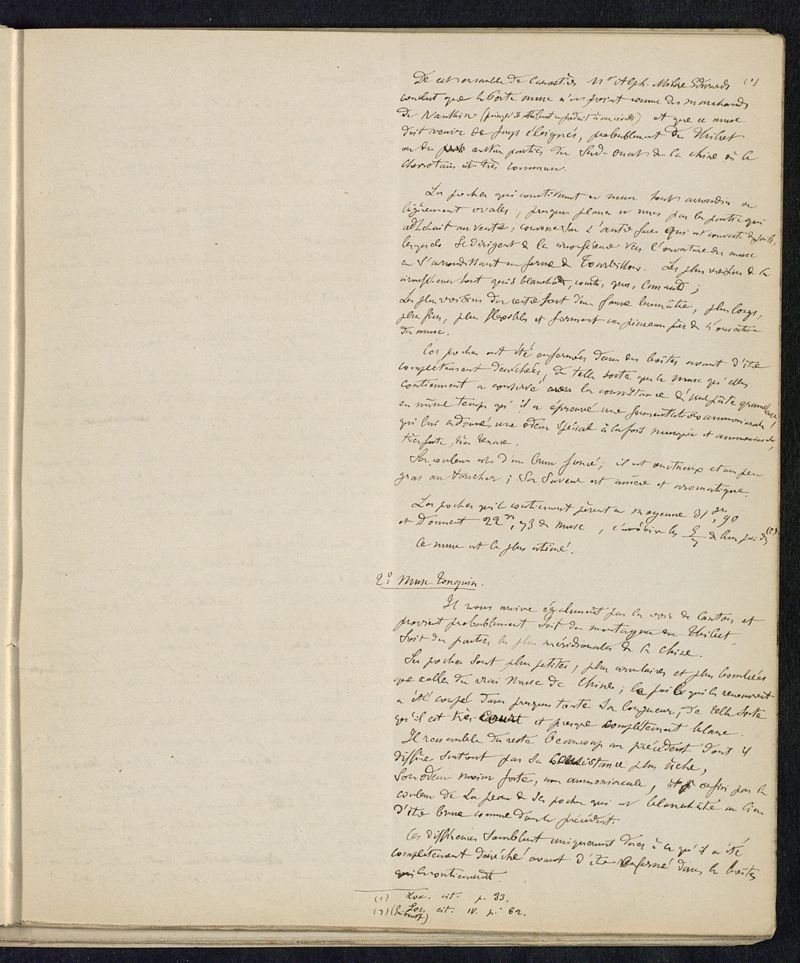 De cet ensemble de caractères Mr Alph. Milne Edwards (1)
conclut que le porte musc n'est point connu des marchands
de Nankin et que ce musc
doit venir de pays éloignés, probablement du Thibet
ou de autres parties du Sud-ouest de la Chine où le
chevrotain est très commun.
Les poches qui contiennent ce musc sont arrondies ou
légèrement ovales, presque planes et nues par la partie qui
adhérait au ventre, convexe sur l'autre face qui est couverte de poils,
lesquels se dirigent de la circonférence vers l'ouverture du musc
en s'arrondissant en forme de tourbillon. Les plus voisins de la
circonférence sont gris blanchâtres, courts, gros, cassants;
Les plus voisins du centre sont d'un fauve brunâtre, plus longs,
plus fins, plus flexibles et forment un pinceau près de l'ouverture
du musc.
Ces poches ont été enfermées dans des boîtes avant d'être
complètement desséchées, de telle sorte que le musc qu'elles
contiennent a conservé la consistance d'une pâte grumeleuse,
en même temps qu'il a éprouvé une fermentation ammoniacale,
qui lui a donné une odeur spéciale à la fois musquée et ammoniacale,
très forte, très tenace.
Sa couleur est d'un brun foncé; il est onctueux et un peu
gras au toucher; sa saveur est amère et aromatique.
Les poches qui le contiennent pèsent en moyenne 31gr,90
et donnent 22gr,73 de musc, c'est à dire les de leur poids (2)
Ce musc est le plus estimé.
2° Musc Tonquin.
Il nous arrive également par la voie de Canton et
provient probablement soit des montagnes du Thibet,
soit des parties les plus méridionales de la Chine.
Ses poches sont plus petites, plus circulaires et plus bombées
que celles du vrai musc de Chine; le poil qui les recouvrait
a été coupé dans presque toute sa longueur, de telle sorte
qu'il est très court et presque complètement blanc.
Il ressemble du reste beaucoup au précédent dont il
diffère surtout par sa consistance plus sèche,
son odeur moins forte, non ammoniacale, et enfin par la
couleur de la peau de ses poches qui est blanchâtre au lieu
d'être brune comme dans le précédent.
Ces différences semblent uniquement dues à ce qu'il a été
complètement desséché avant d'être renfermé dans les boîtes
qui le contiennent
(1) Loc. cit. p. 33.
(2) (Guibourt) Loc. cit. IV. p. 62.